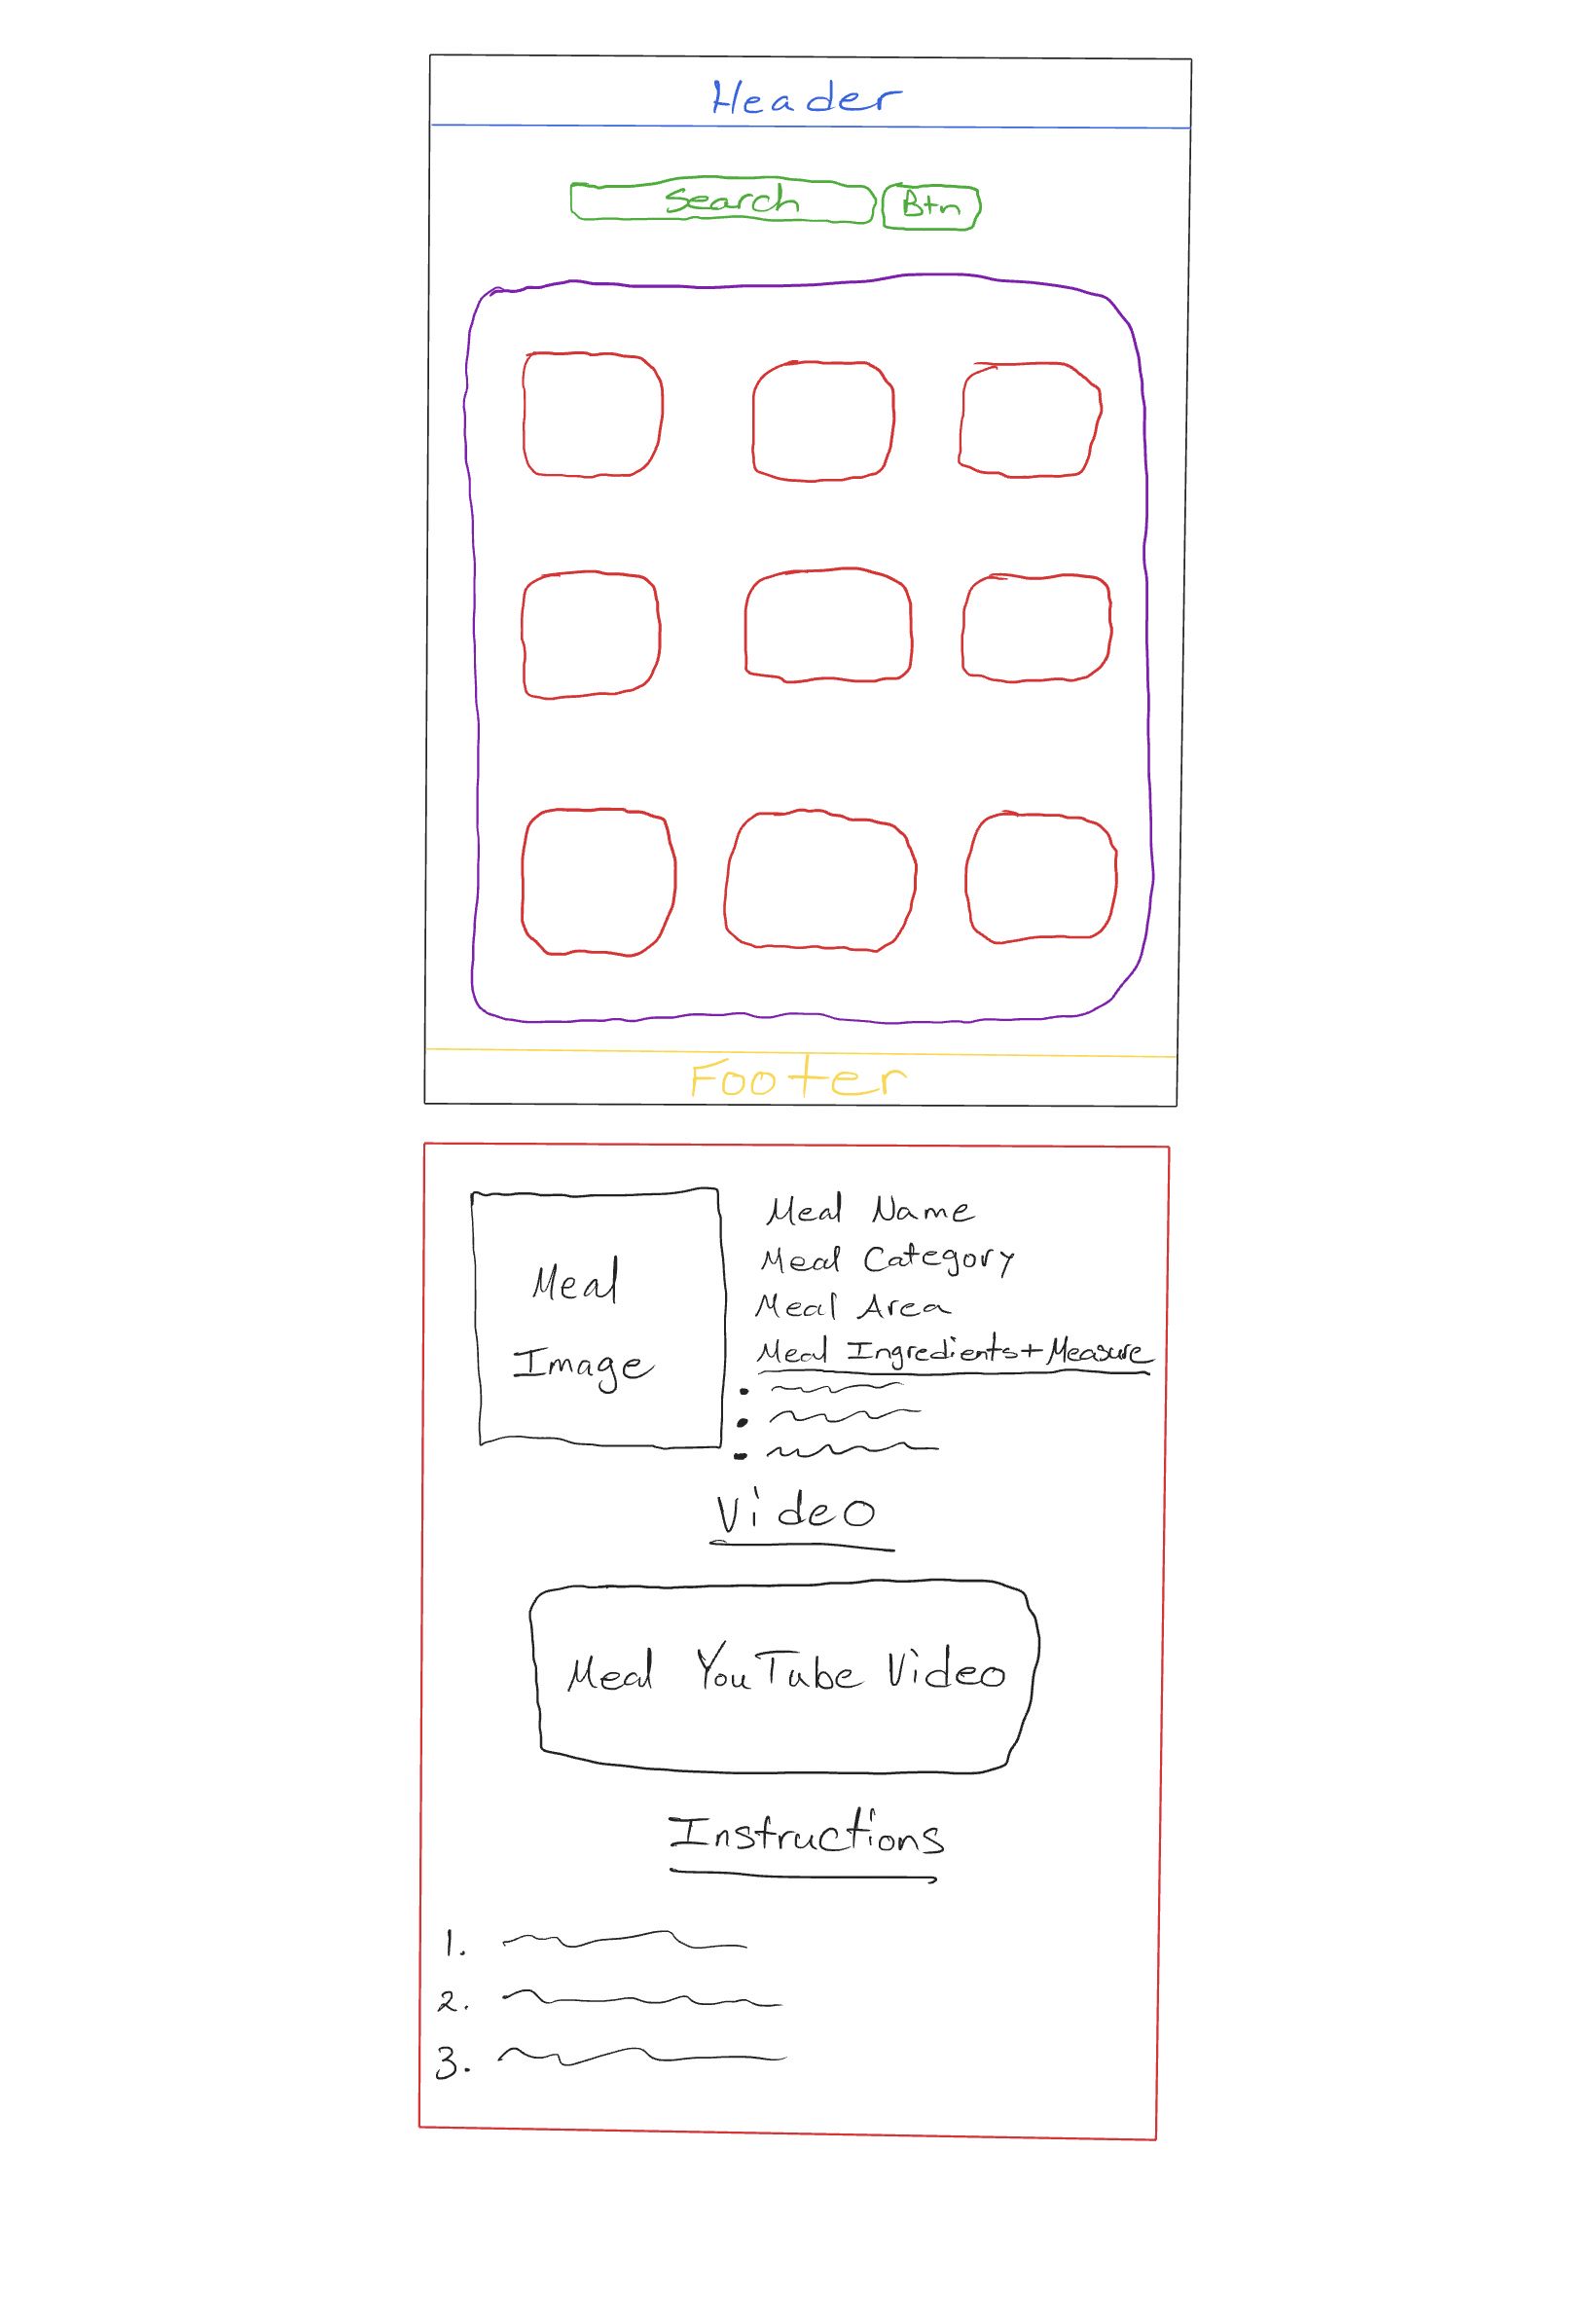 Header
Search
Btn
Footer
Meal
Image
Meal Name
Meal Category
Meal Area
Meal Ingredients+Measure
Video
Meal YouTube Video
Instructions
1.
2.
3.